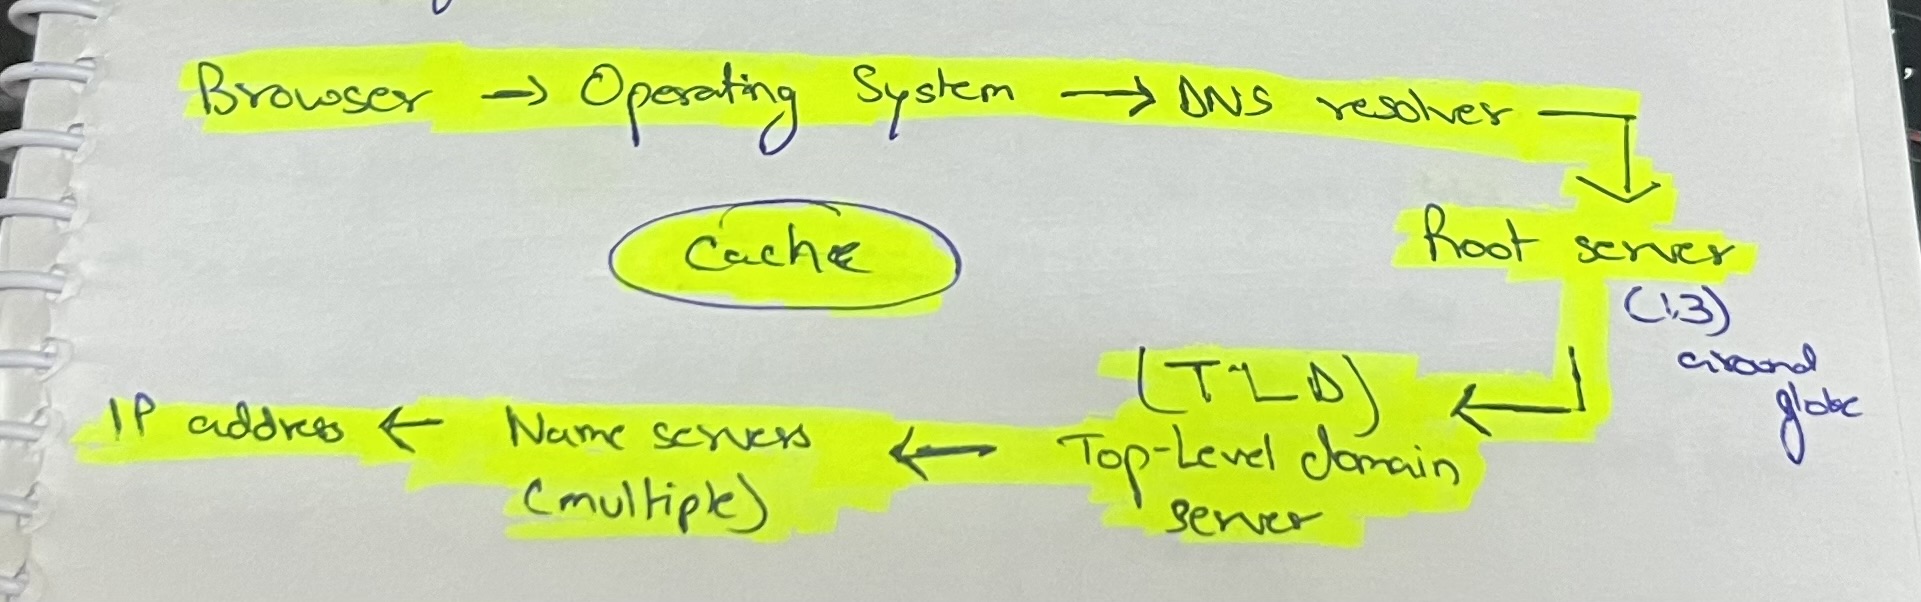 Browser → Operating System → DNS resolver
Cache
Root server
(13)
around
globe
(TLD)
Top-Level domain
server
←
Name servers
(multiple)
←
IP address